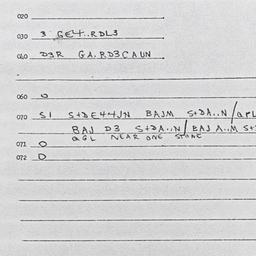 020
030 3 GE4..RDL3
040 D3R GA.RD3CAUN
060 U
070 S1 S+DE44JN BAJM S+DA..N/apl
BAJ D3 S+DA..N/BAJ A..M S+
agl NEAR ONE
071 O
072 D